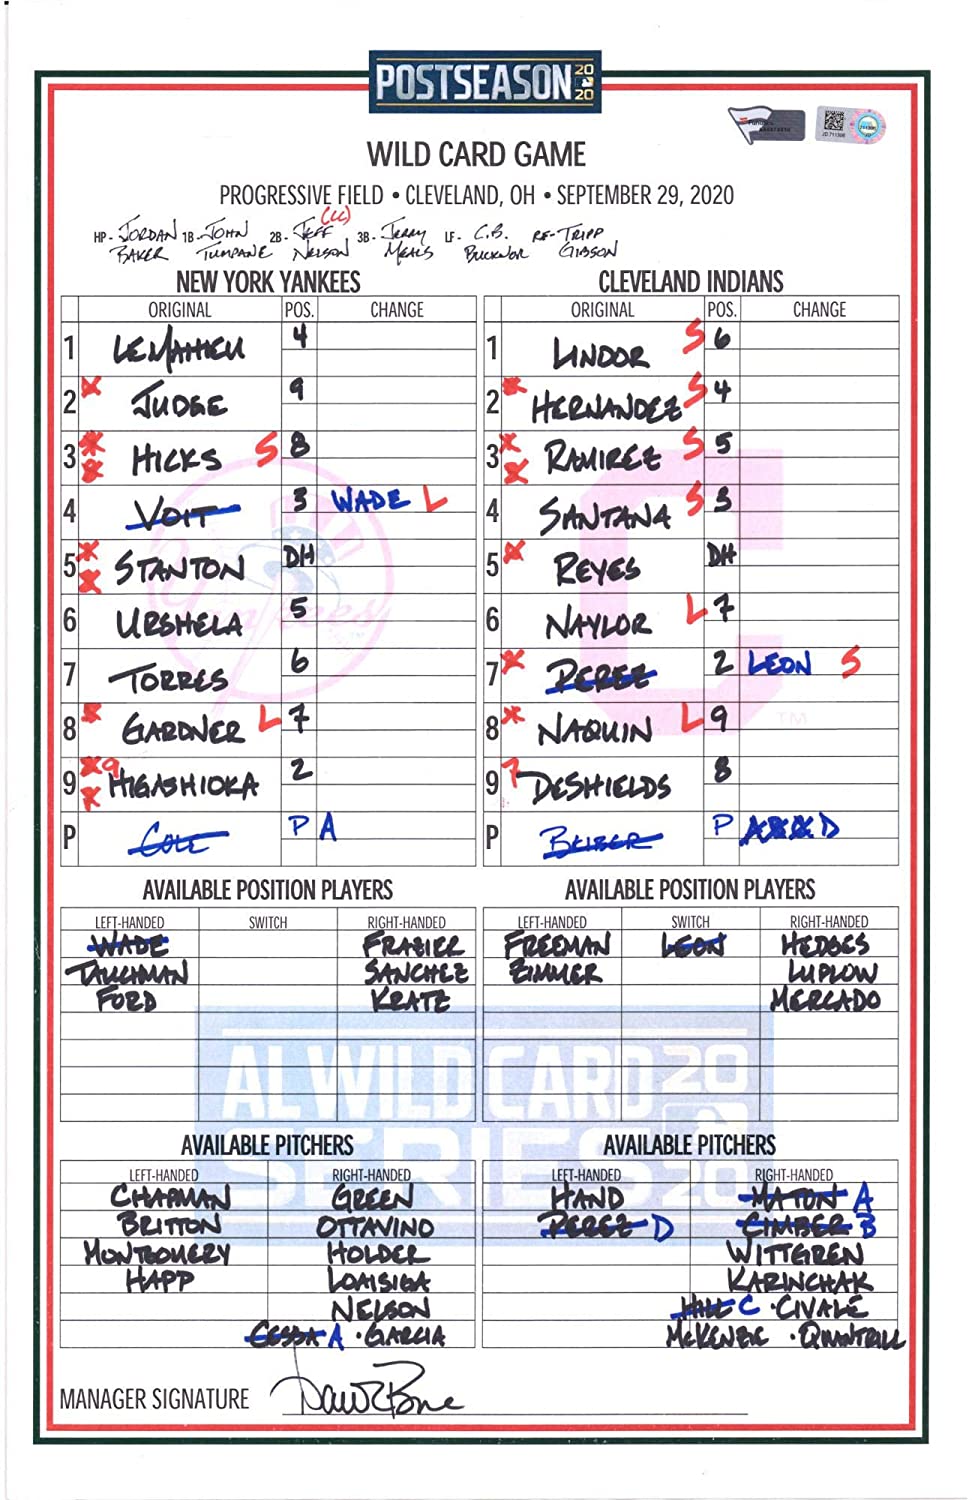 POSTSEASON 20 20
WILD CARD GAME
PROGRESSIVE FIELD • CLEVELAND, OH • SEPTEMBER 29, 2020
(CC)
HP - JORDAN BAKER 1B - JOHN TUMPANE 2B - JEFF NELSON 3B - JERRY MEALS LF - C.B. BUCKNOR RF - TRIPP GIBSON
NEW YORK YANKEES
ORIGINAL POS. CHANGE
1 LEMAHIEU 4
2 JUDGE 9
3 HICKS S 8
4 VOIT 3 WADE L
5 STANTON DH
6 URSHELA 5
7 TORRES 6
8 GARDNER L 7
9 9 HIGASHIOKA 2
P COLE P A
CLEVELAND INDIANS
ORIGINAL POS. CHANGE
1 LINDOR S 6
2 HERNANDEZ S 4
3 RAMIREZ S 5
4 SANTANA S 3
5 REYES DH
6 NAYLOR L 7
7 PEREZ 2 LEON S
8 NAQUIN L 9
9 7 DESHIELDS 8
P BEIBER P D
AVAILABLE POSITION PLAYERS
LEFT-HANDED SWITCH RIGHT-HANDED
WADE FRAZIER
TAUCHMAN SANCHEZ
FORD KRATZ
AVAILABLE POSITION PLAYERS
LEFT-HANDED SWITCH RIGHT-HANDED
FREEMAN LEON HEDGES
ZIMMER LUPLOW
MERCADO
AL WILD CARD 20
SERIES 20
AVAILABLE PITCHERS
LEFT-HANDED RIGHT-HANDED
CHAPMAN GREEN
BRITTON OTTAVINO
MONTGOMERY HOLDER
HAPP LOAISIGA
NELSON
CESSA A · GARCIA
AVAILABLE PITCHERS
LEFT-HANDED RIGHT-HANDED
HAND MATON A
PEREZ D CIMBER B
WITTGREN
KARINCHAK
HILL C · CIVALE
MCKENZIE · QUANTRILL
MANAGER SIGNATURE